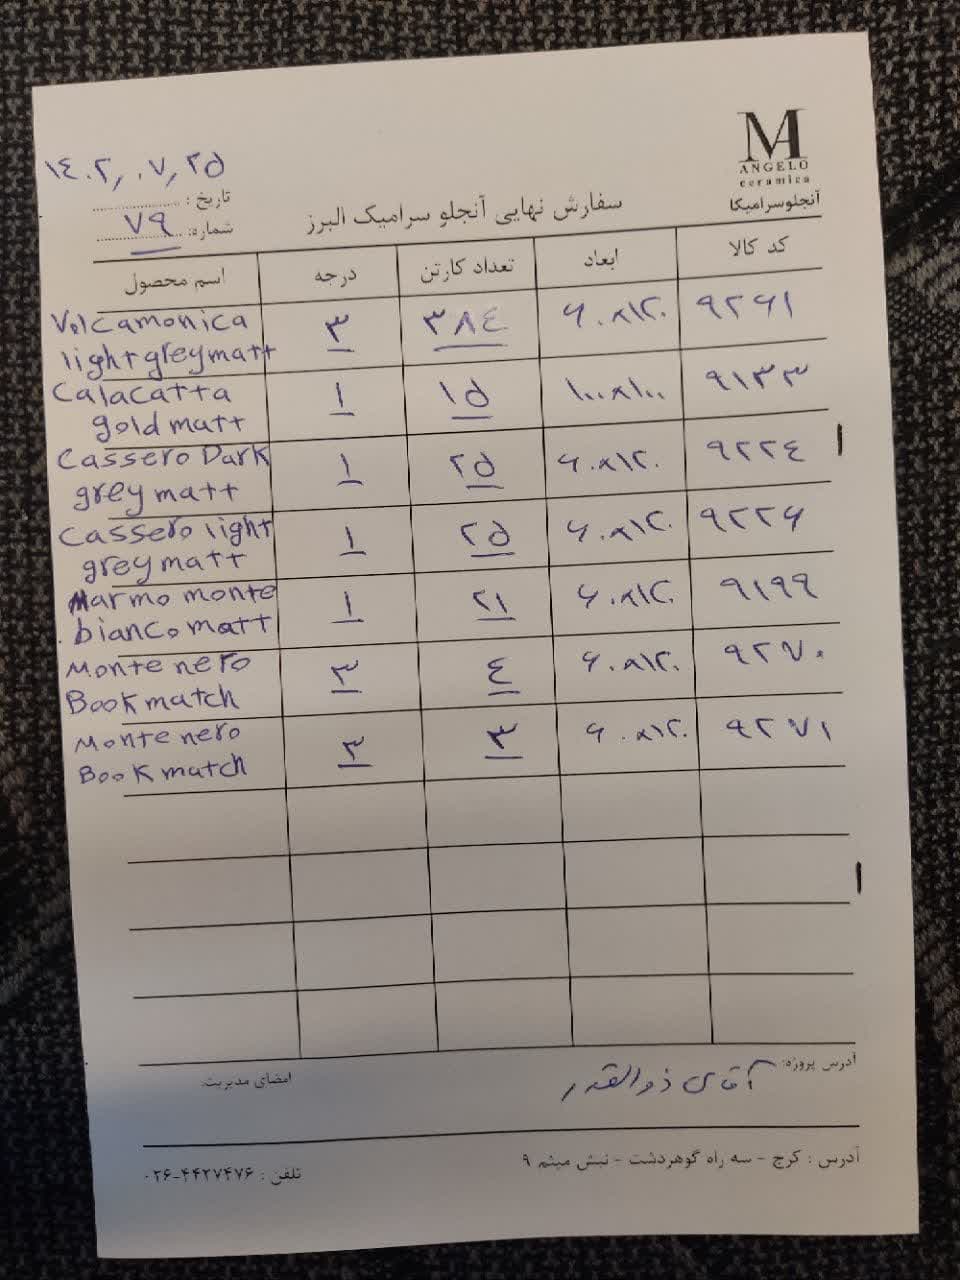 M
ANGELO
ceramica
آنجلوسرامیکا
۱٤۰۲,۰۷,۲۵
تاریخ :
شماره: ۷۹
سفارش نهایی آنجلو سرامیک البرز
کد کالا ابعاد تعداد کارتن درجه اسم محصول
۹۲۶۱ ۶۰×۱۲۰ ۳۸٤ ۳ Volcamonica
light grey matt
۹۱۳۳ ۱۰۰×۱۰۰ ۱۵ ۱ Calacatta
gold matt
۹۲۲٤ ۶۰×۱۲۰ ۲۵ ۱ Cassero Dark
grey matt
۹۲۲۶ ۶۰×۱۲۰ ۲۵ ۱ Cassero light
grey matt
۹۱۹۹ ۶۰×۱۲۰ ۲۱ ۱ Marmo monte
bianco matt
۹۲۷۰ ۶۰×۱۲۰ ٤ ۳ Monte nero
Book match
۹۲۷۱ ۶۰×۱۲۰ ۳ ۳ Monte nero
Book match
آدرس پروژه: آقای ذوالقدر
امضای مدیریت:
آدرس : کرج - سه راه گوهردشت - نبش میثم ۹
تلفن : ۴۴۲۷۴۷۶-۰۲۶